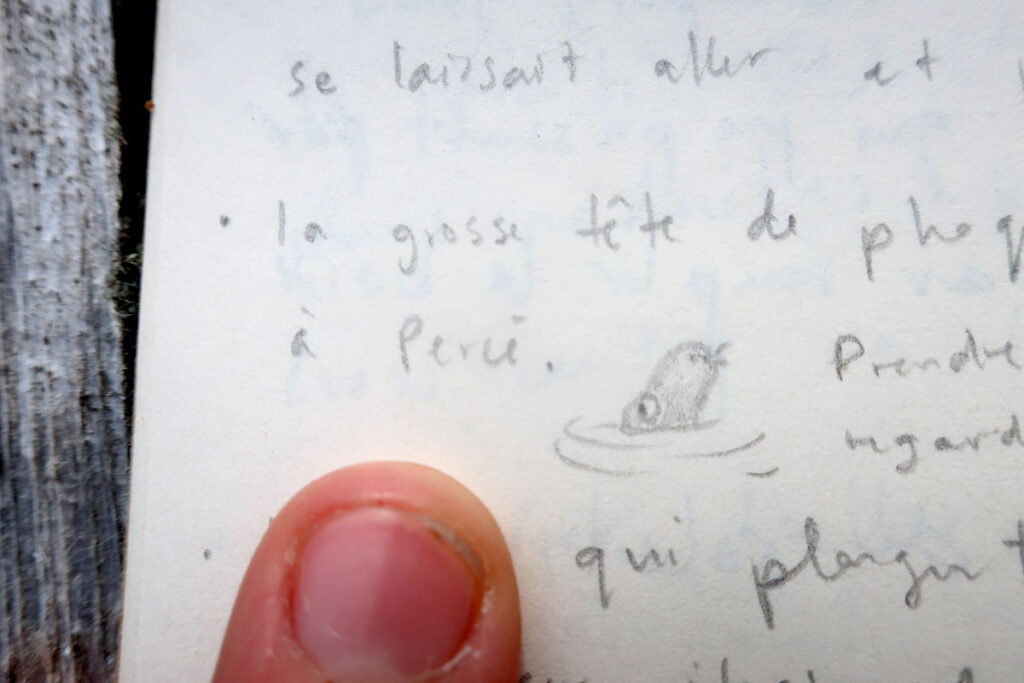 se laissait aller et
la grosse tête de phoq
à Percé.
Prendre
regard
qui